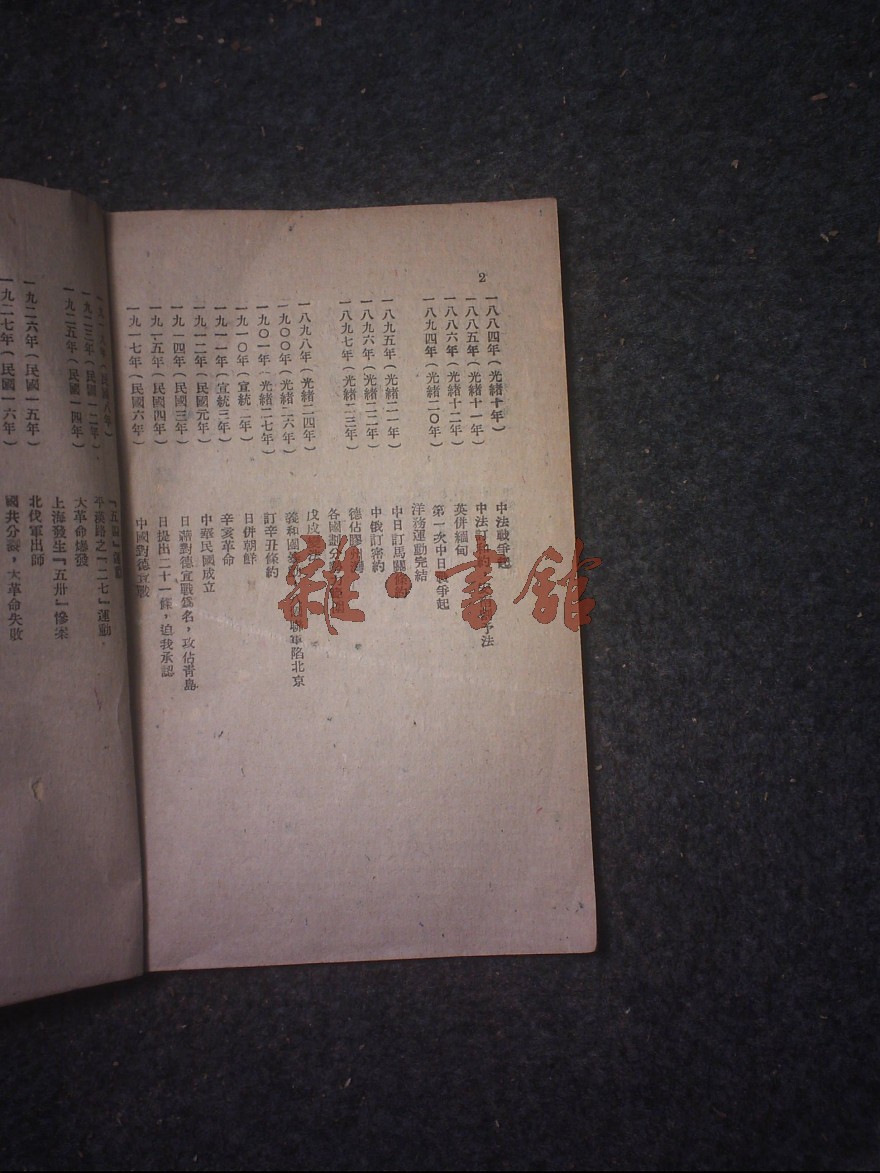 2
一八八四年(光緒十年) 中法戰爭起
一八八五年(光緒十一年) 中法訂 約 予法
一八八六年(光緒十二年) 英併緬甸
一八九四年(光緒二〇年) 第一次中日戰爭起
洋務運動完結
一八九五年(光緒二一年) 中日訂馬關條約
一八九六年(光緒二二年) 中俄訂密約
一八九七年(光緒二三年) 德佔膠州灣
各國劃分
一八九八年(光緒二四年) 戊戌
一九〇〇年(光緒二六年) 義和團 聯軍陷北京
一九〇一年(光緒二七年) 訂辛丑條約
一九一〇年(宣統二年) 日併朝鮮
一九一一年(宣統三年) 辛亥革命
一九一二年(民國元年) 中華民國成立
一九一四年(民國三年) 日藉對德宣戰爲名,攻佔青島
一九一五年(民國四年) 日提出二十一條,迫我承認
一九一七年(民國六年) 中國對德宣戰
『五四』運動
一九二三年(民國一二年) 平漢路之『二七』運動
一九二五年(民國一四年) 大革命爆發
上海發生『五卅』慘案
一九二六年(民國一五年) 北伐軍出師
一九二七年(民國一六年) 國共分裂,大革命失敗
雜·書館